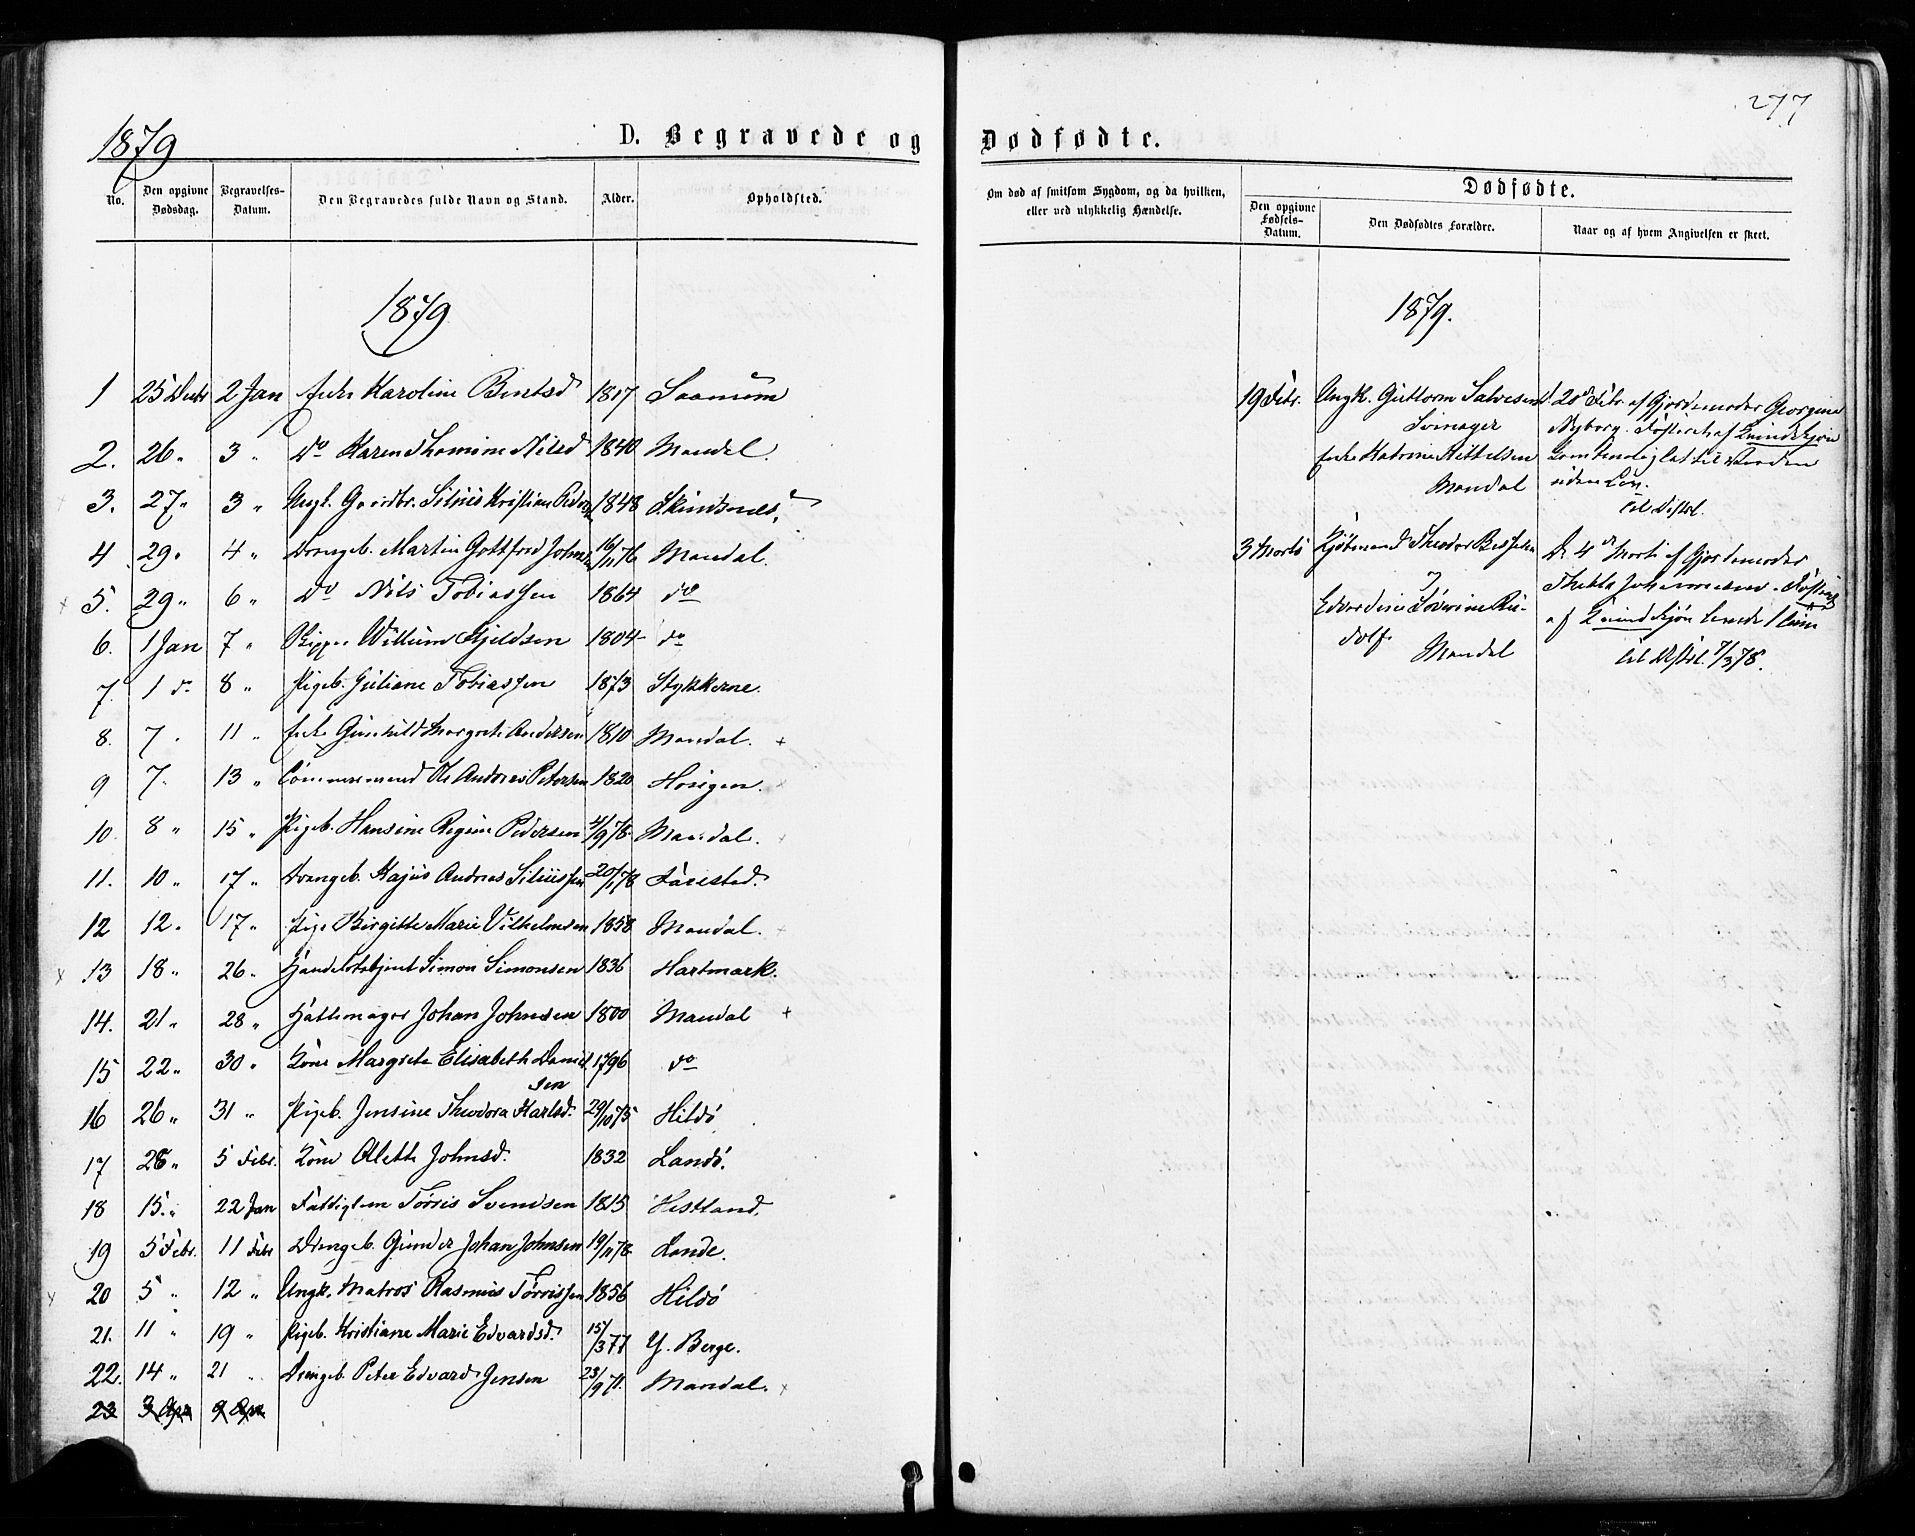 277
1879
D. Begravede og Dødfødte.
No.
Den opgivne Dødsdag.
Begravelses-Datum.
Den Begravedes fulde Navn og Stand.
Alder.
Opholdsted.
Om død af smitsom Sygdom, og da hvilken,
eller ved ulykkelig Hændelse.
Dødfødte.
Den opgivne Fødsels-Datum.
Den Dødfødtes Forældre.
Naar og af hvem Angivelsen er skeet.
1879
1 25 Decbr 2 Jan Enke Karoline Berntsd 1817 Saanum
2. 26 " 3 " Do Karen Thomine Nilsd 1840 Mandal.
3. 27 " 3 " Ungk. Gaardbr. Silius Kristian 1848 Skindsnes.
4 29 " 4 " Drengeb. Martin Gottfred 16/11 76 Mandal.
5. 29 " 6 " Do Nils Tobiassen 1864 do
6. 1 Jan 7 " Skipper Willum Gjeldsen 1804 do
7. 1 d- 8 " Pigeb. Juliane Tobiassen 1873 Stykkerne.
8. 7 . 11 " Enke Gunhild Margrete Andersen 1810 Mandal. +
9 7. 13 " Tømmermand Ole Andreas Petersen 1820 Hosigen.
10. 8 " 15 " Pigeb. Hansine Regine Pedersen 4/9 78 Mandal.
11. 10 " 17 " Drengeb. Kajus Andreas Siliussen 20/11 78 Farestad.
12 12 " 17 " Pige Birgitte Marie Vilhelmsen 1858 Mandal.
13 18 " 26 " Handelsbetjent Simon Simonsen 1836 Hartmark.
14. 21 " 28 " Hattemager Johan Johnsen 1800 Mandal +
15 22 " 30 " Kone Margrete Elisabeth Daniel
sen 1796 do
16 26 " 31 " Pigeb. Jensine Theodora Karlsd. 29/10 75 Hildø
17 28 " 5 Febr. Kone Alette Johnsd. 1832 Landø.
18 15. " 22 Jan Fattiglem Tørris Svendsen 1815 Hestland.
19 5 Febr. 11 Febr Drengeb. Gunder Johan Johnsen 19/11 78 Lande.
20 5 " 12 " Ungk. Matros Rasmus Tørrissen 1856 Hildø
21. 11 " 19 " Pigeb. Kristiane Marie Edvardsd. 15/3 77 Y. Berge.
22. 14 " 21 " Drengeb. Peter Edvard Jensen 23/9 71. Mandal.
23 3 Apr 9 Apr
1879.
19 Febr. Ungk. Guttorm Salvesen
Svinager
Enke Katrine Kittelsen
Mandal
D. 20de Febr. af Gjordemoder Georgine
Nyborg. Fosteret af Kvindekjøn
til Verden
uden Liv.
til Distrl.
3 Marts Kjøbmand Theodor
Edvardine Severine Ru-
dolf
Mandal
D. 4de Marts af Gjordemoder
Thekla Johannesen. Fosteret
af Kvindekjøn
til Distrl. 7/3 78.